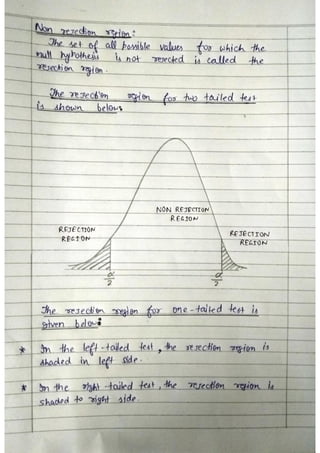 Non rejection region:
The set of all possible values for which the
null hypothesis is not rejected is called the
rejection region.
The rejection region for two tailed test
is shown below:
NON REJECTION
REGION
REJECTION
REGION
REJECTION
REGION
α/2
α/2
The rejection region for one-tailed test is
given below:
* In the left-tailed test, the rejection region is
shaded in left side.
* In the right-tailed test, the rejection region is
shaded to right side.